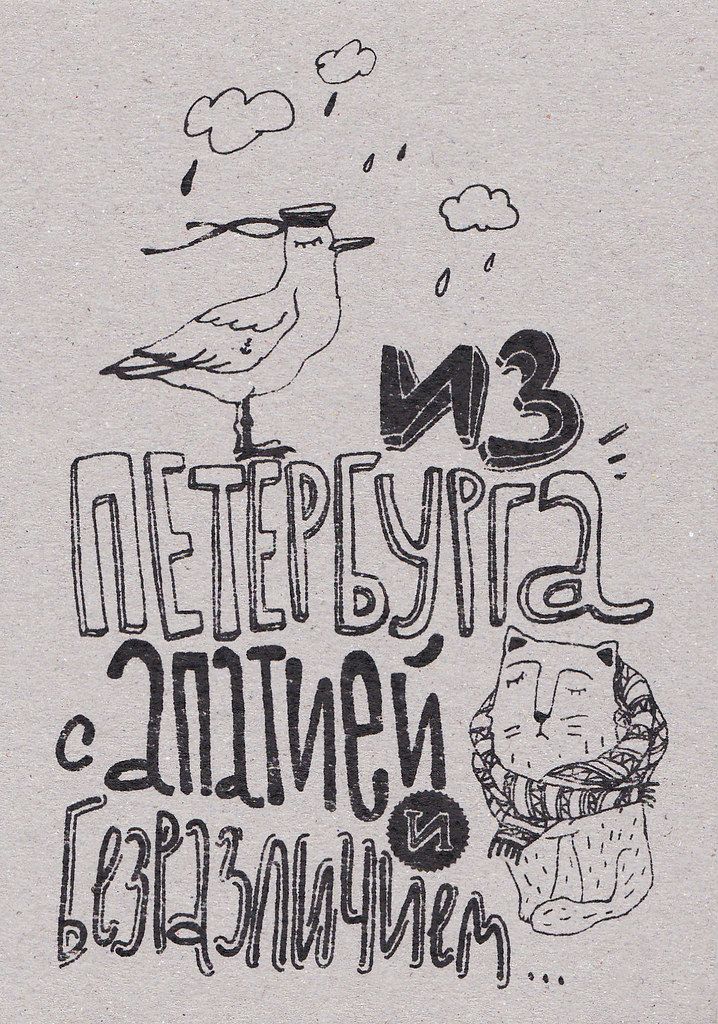 ИЗ
ПЕТЕРБУРГА
с апатией
и
безразличием...